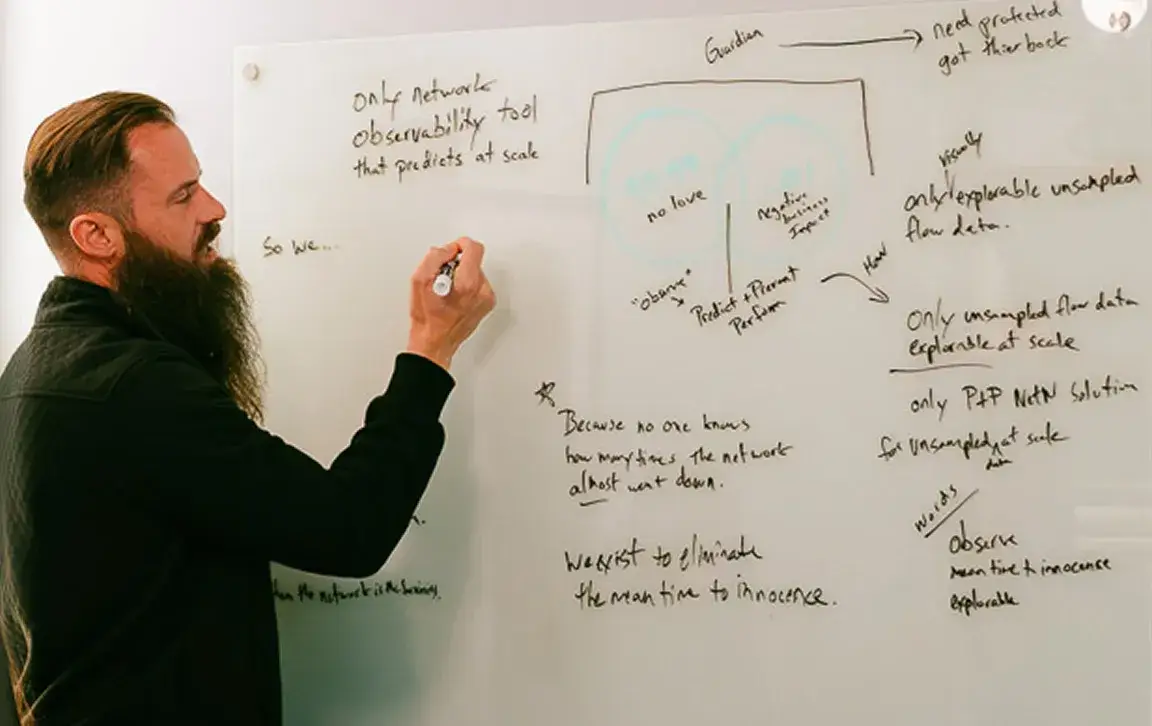 Guardian
need protected
got thier back
only network
observability tool
that predicts at scale
So we...
no love
negative
business
Impact
"observe"
Predict + Prevent
Perform
How
visually
only explorable unsampled
flow data.
Only unsampled flow data
explorable at scale
only P+P NetN Solution
for unsampled at scale
data
Because no one knows
how many times the network
almost went down.
We exist to eliminate
the mean time to innocence.
words
observe
mean time to innocence
explorable
the network is the business.